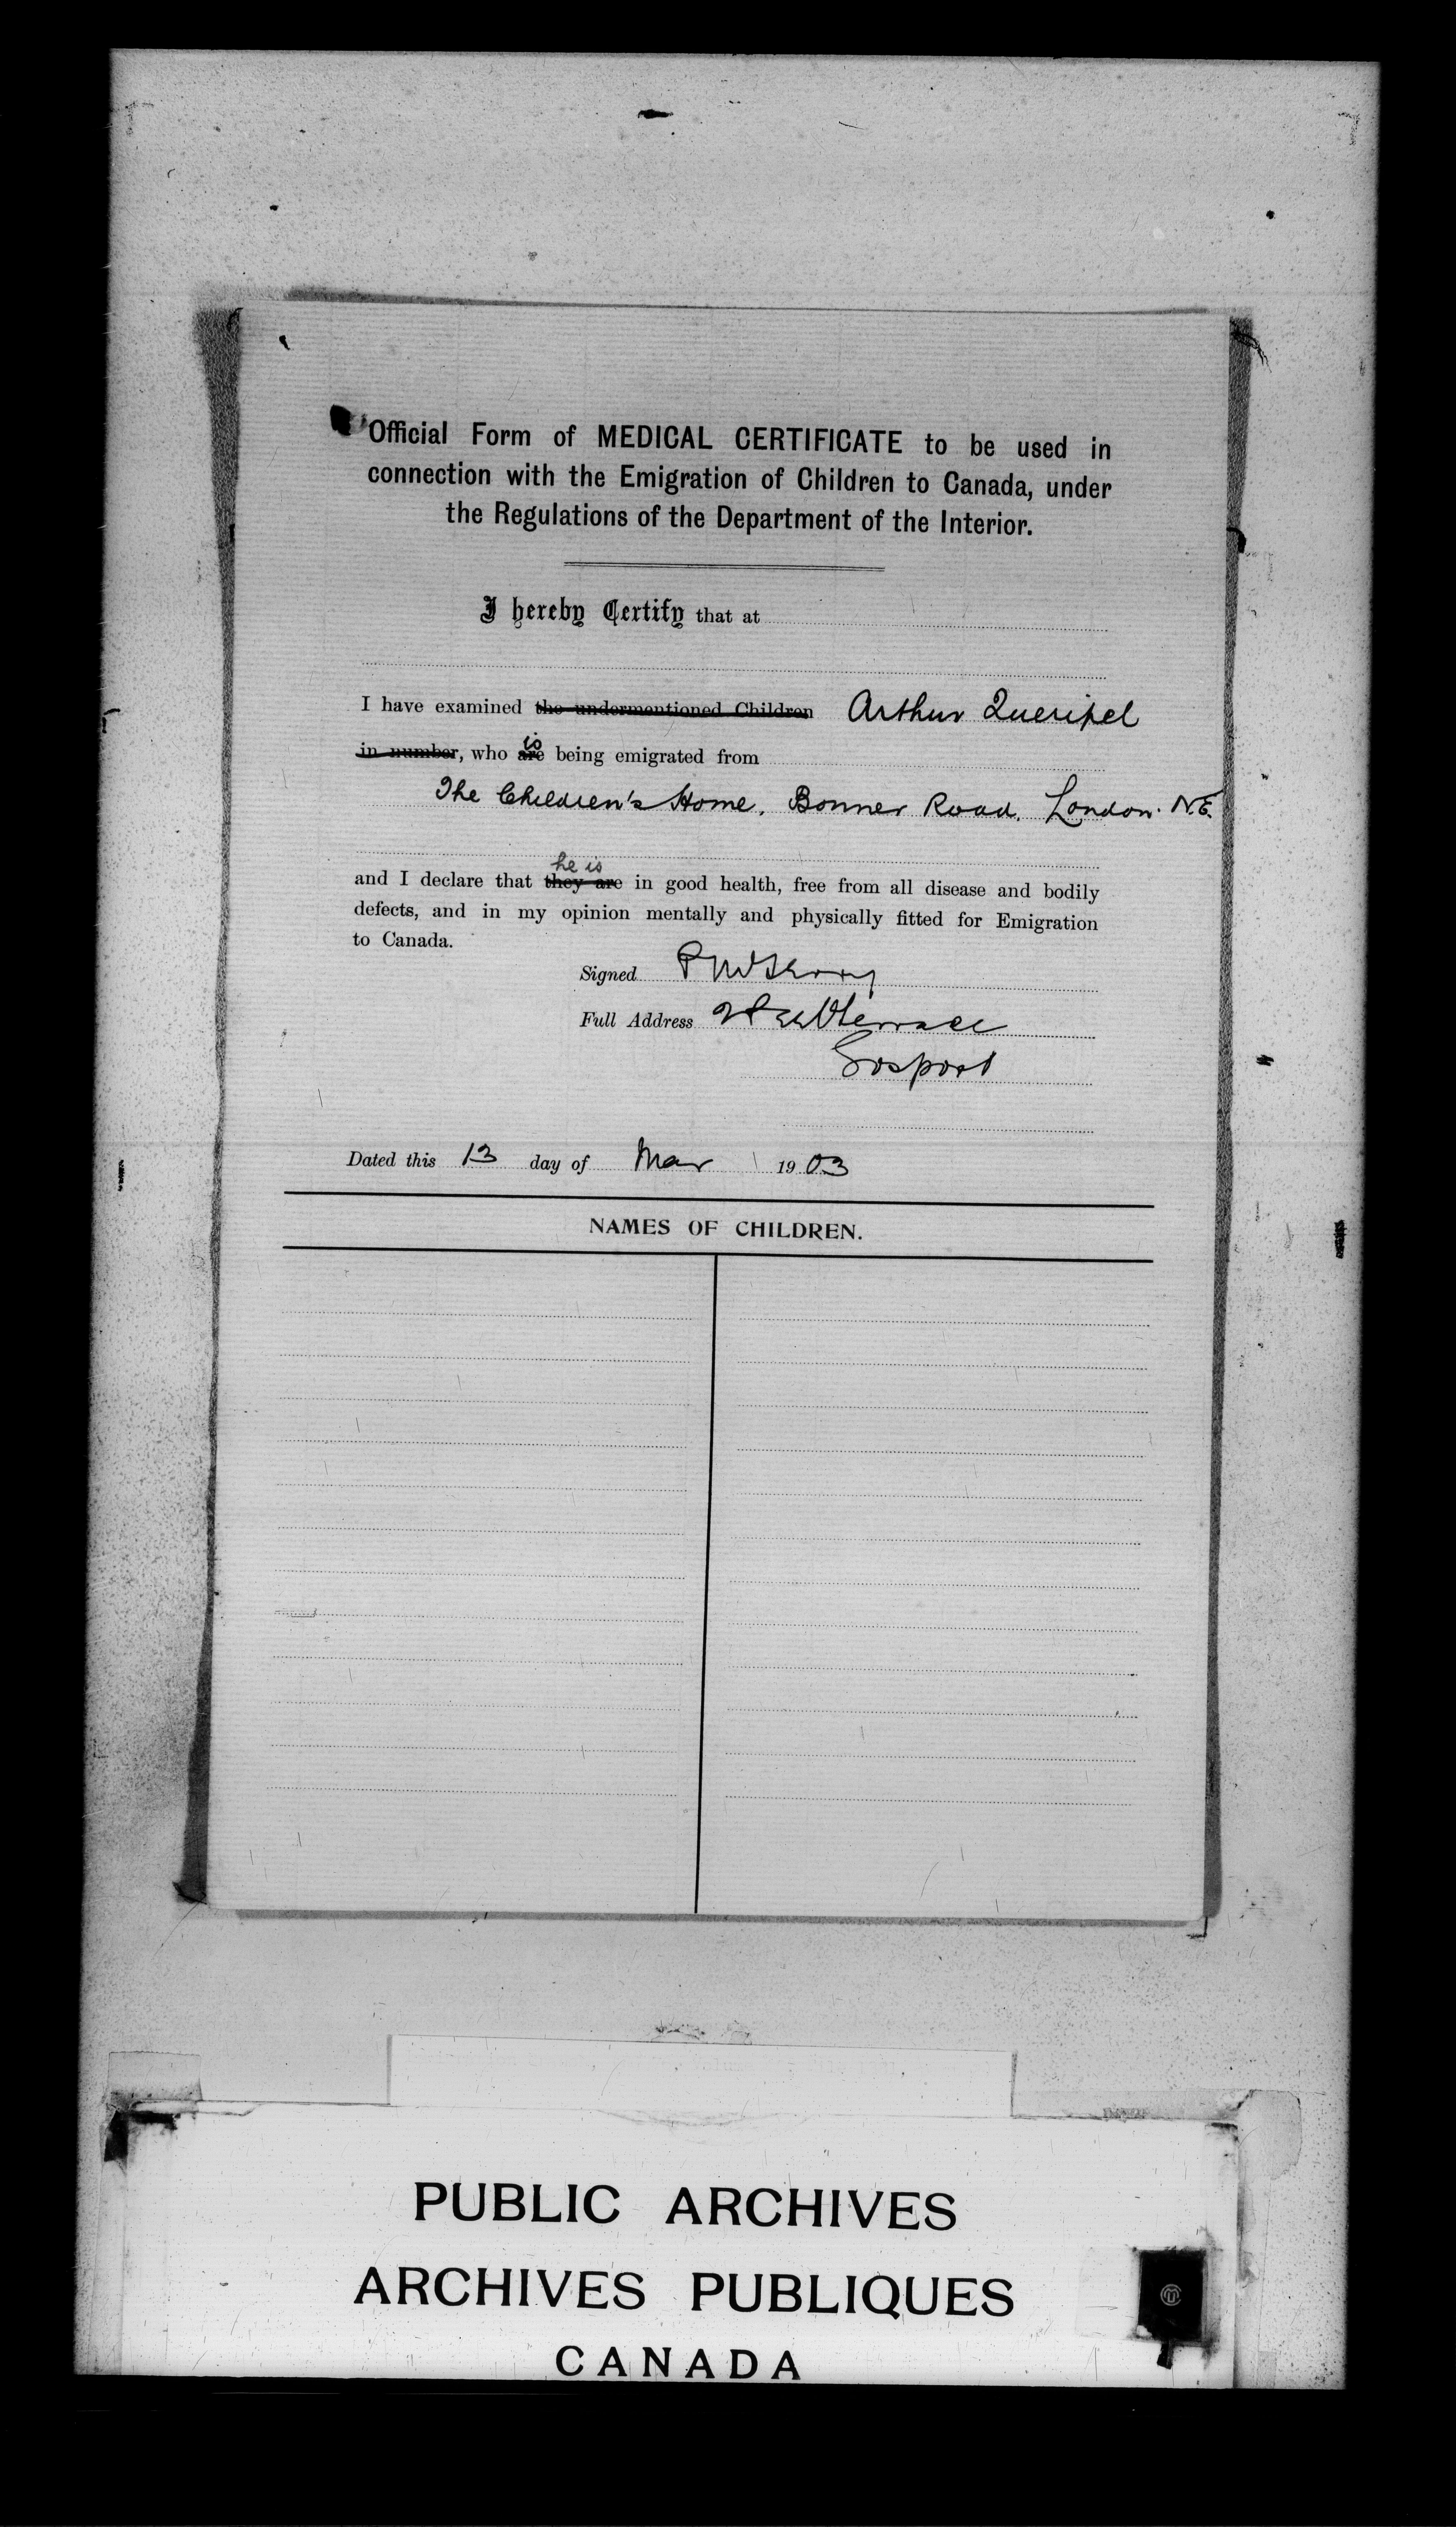 Official Form of MEDICAL CERTIFICATE to be used in
connection with the Emigration of Children to Canada, under
the Regulations of the Department of the Interior.
I hereby Certify that at
I have examined the undermentioned Children Arthur Queripel
is
in number, who are being emigrated from
The Children's Home, Bonner Road, London. N.E.
he is
and I declare that they are in good health, free from all disease and bodily
defects, and in my opinion mentally and physically fitted for Emigration
to Canada.
Signed
Full Address
Gosport
Dated this 13 day of Mar 1903
NAMES OF CHILDREN.
PUBLIC ARCHIVES
ARCHIVES PUBLIQUES
CANADA